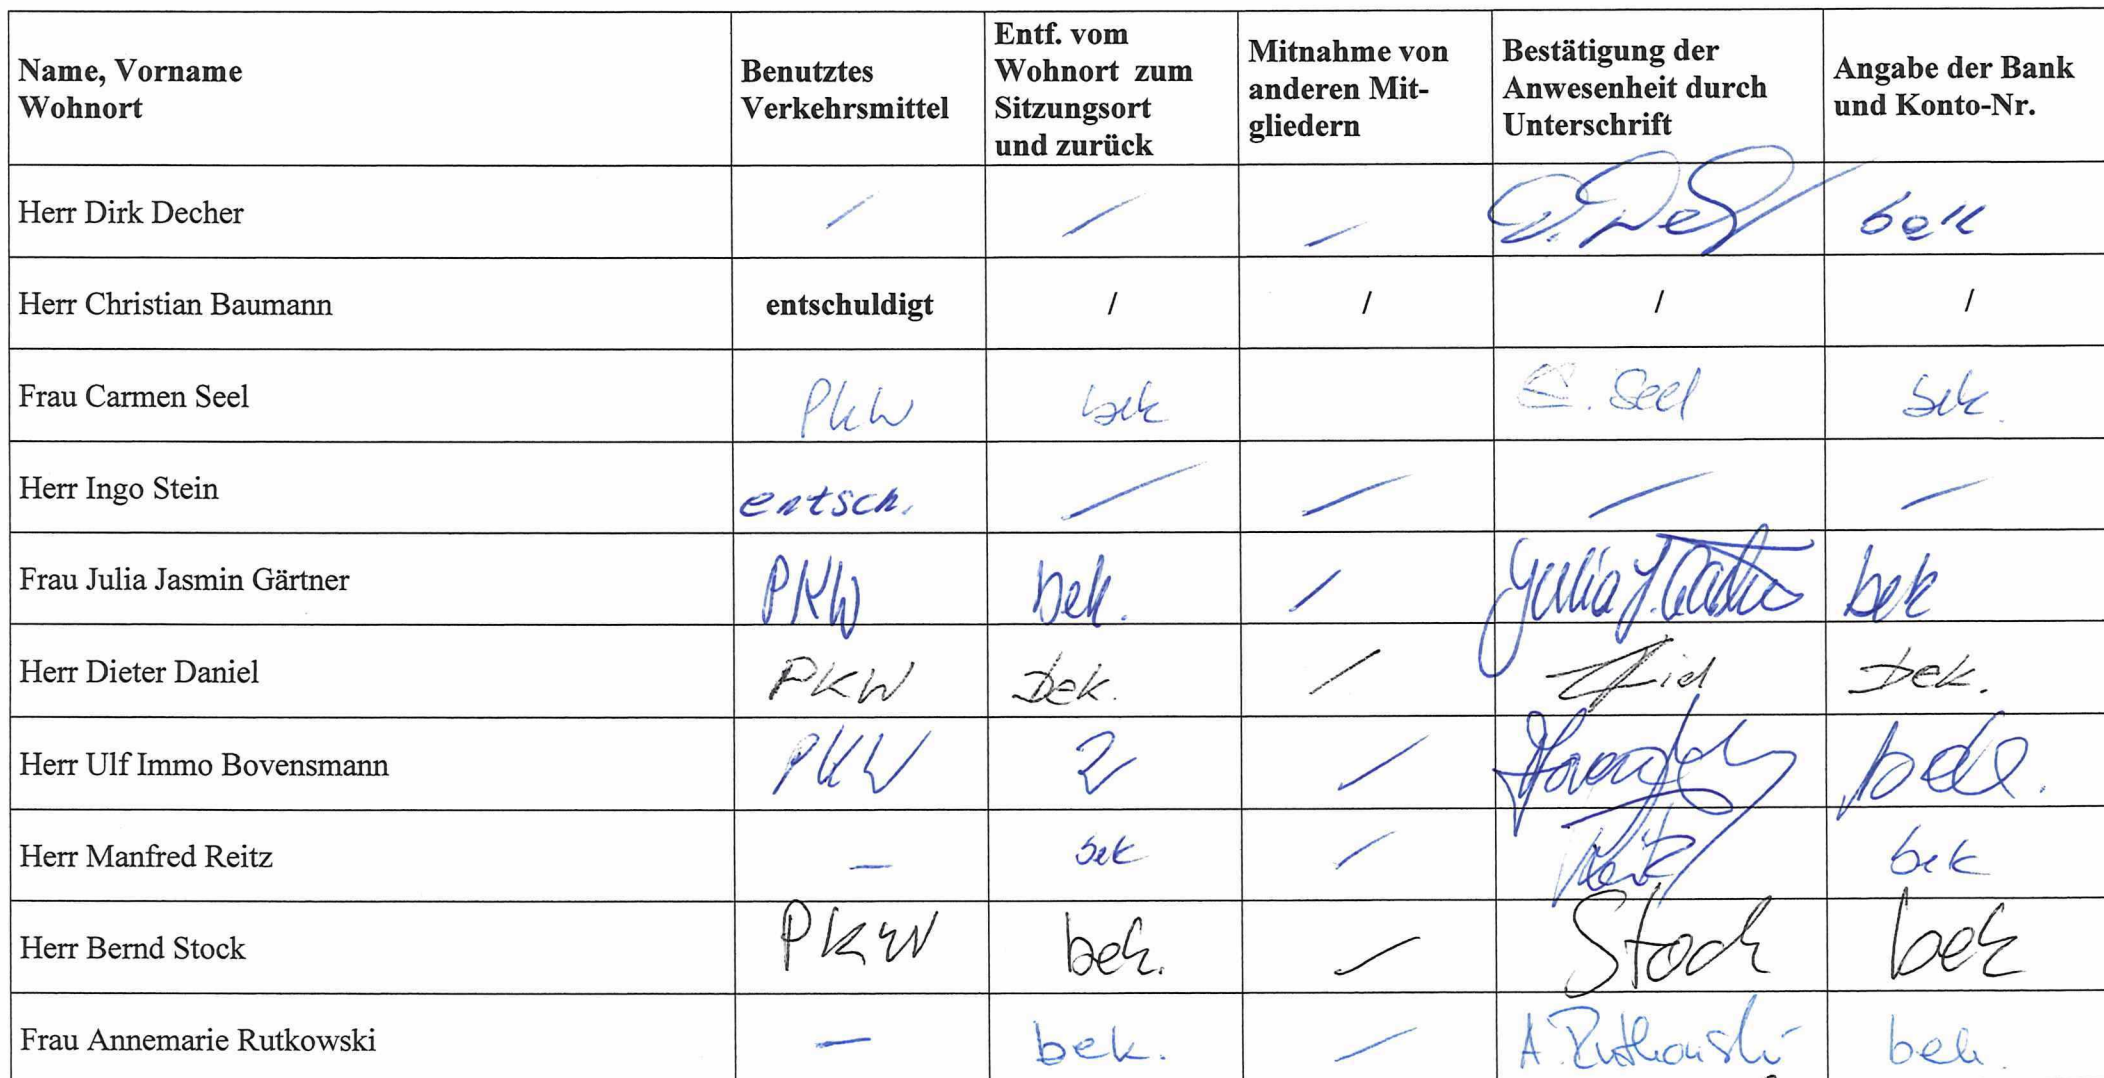 Name, Vorname
Wohnort
Benutztes
Verkehrsmittel
Entf. vom
Wohnort zum
Sitzungsort
und zurück
Mitnahme von
anderen Mit-
gliedern
Bestätigung der
Anwesenheit durch
Unterschrift
Angabe der Bank
und Konto-Nr.
Herr Dirk Decher / / / bek
Herr Christian Baumann entschuldigt / / / /
Frau Carmen Seel PKW bek C. Seel bek.
Herr Ingo Stein entsch. / / / /
Frau Julia Jasmin Gärtner PKW bek. / Julia J. Gärtner bek
Herr Dieter Daniel PKW bek. / bek.
Herr Ulf Immo Bovensmann PKW 2 / bek.
Herr Manfred Reitz – bek / Reitz bek
Herr Bernd Stock PKW bek. / Stock bek
Frau Annemarie Rutkowski – bek. / A. Rutkowski bek